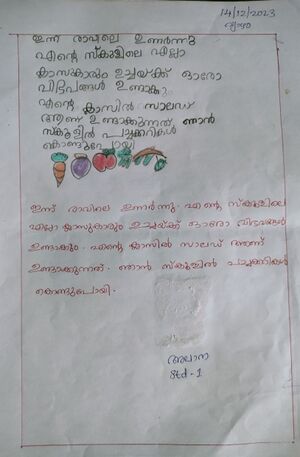 14/12/2023
വ്യാഴം
ഇന്ന് രാവിലെ ഉണർന്നു
എന്റെ സ്കൂളിലെ എല്ലാ
ക്ലാസുകാരും ഉച്ചയ്ക്ക് ഓരോ
വിഭവങ്ങൾ ഉണ്ടാക്കും.
എന്റെ ക്ലാസിൽ സാലഡ്
ആണ് ഉണ്ടാക്കുന്നത്. ഞാൻ
സ്കൂളിൽ പച്ചക്കറികൾ
കൊണ്ടുപോയി
ഇന്ന് രാവിലെ ഉണർന്നു. എന്റെ സ്കൂളിലെ
എല്ലാ ക്ലാസുകാരും ഉച്ചയ്ക്ക് ഓരോ വിഭവങ്ങൾ
ഉണ്ടാക്കും. എന്റെ ക്ലാസിൽ സാലഡ് ആണ്
ഉണ്ടാക്കുന്നത്. ഞാൻ സ്കൂളിൽ പച്ചക്കറികൾ
കൊണ്ടുപോയി.
അലാന
Std - 1